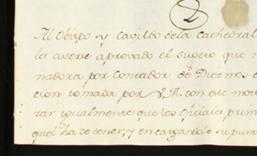 2
Al Obispo y Cavildo de la Cathedral
les avers e aprovado el sugeto que n
nadora por Contador de Diezmos e
cion tomada por V.M. con que mo
zar igualmente que los oficiales prim
que ha de tener, y encargandole su punt